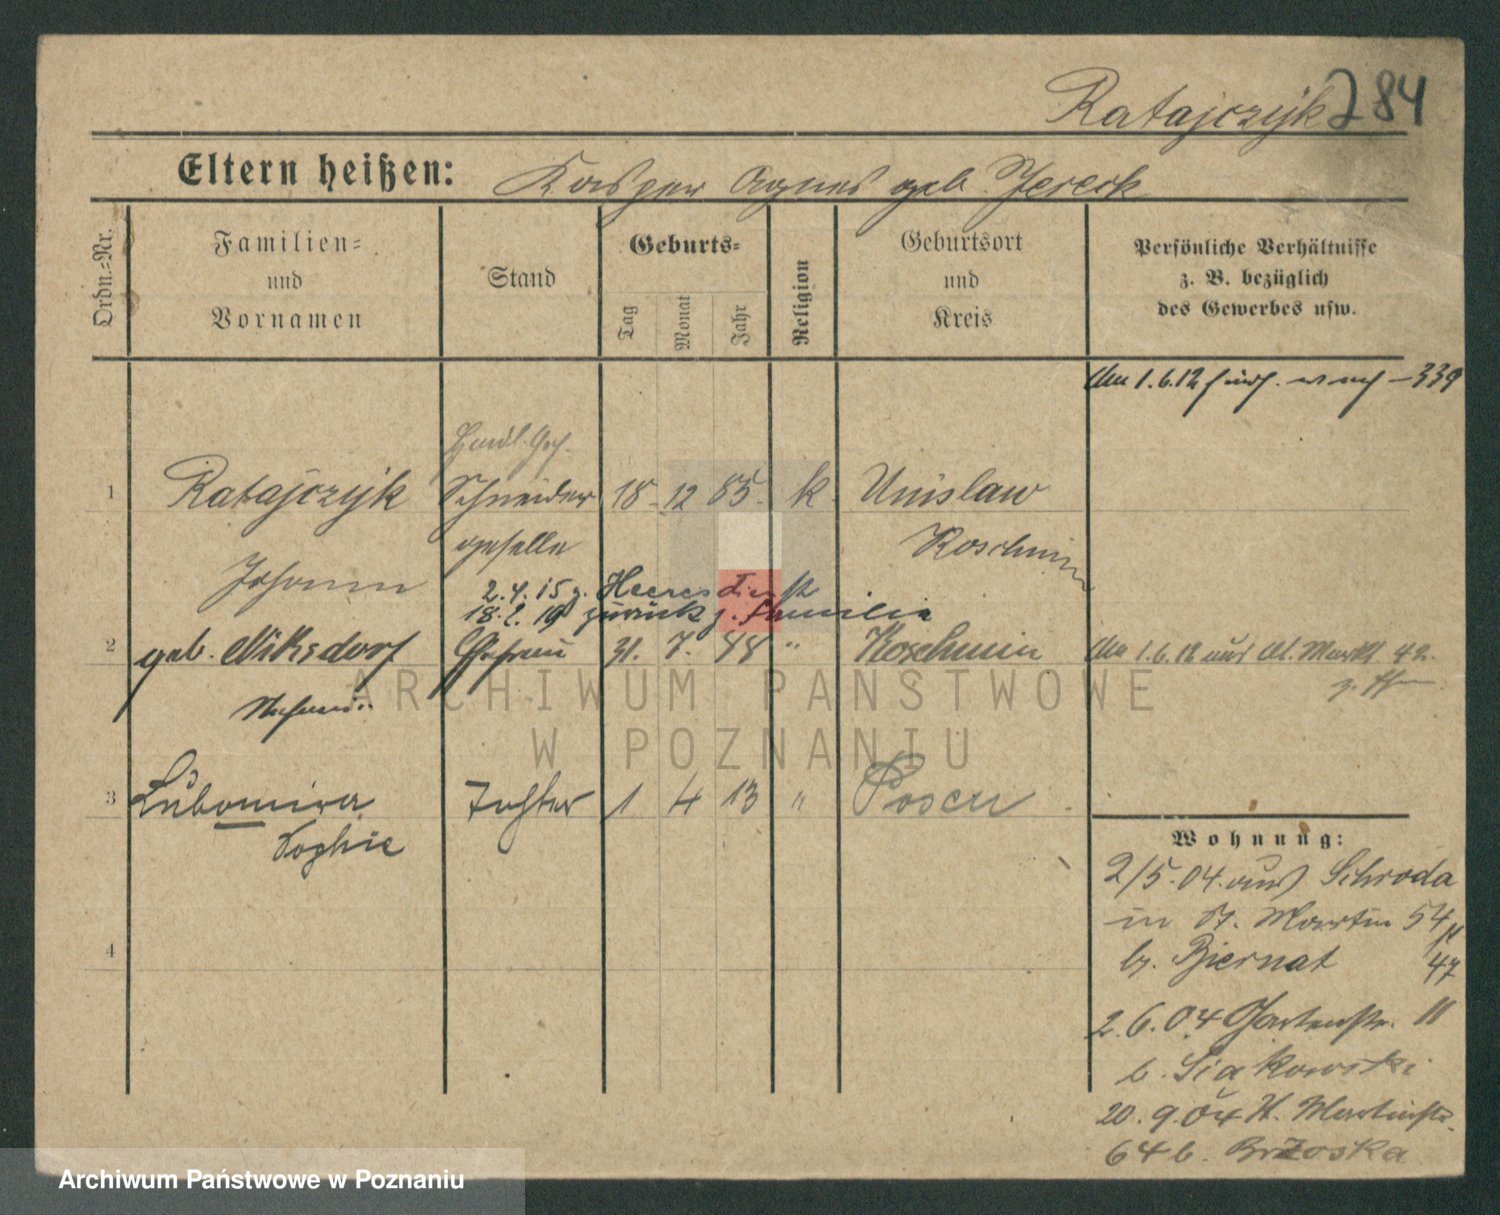 Ratajczyk 284
Eltern heißen: Kasper Agnes geb.
Ordn.-Nr.
Familien-
und
Vornamen
Stand
Geburts-
Tag
Monat
Jahr
Religion
Geburtsort
und
Kreis
Persönliche Verhältnisse
z. B. bezüglich
des Gewerbes usw.
1.6.12 339
1 Ratajczyk Schneider 18 12 85 k Unislaw
geselle Koschmin
Johann
2.4.15 z. Heeresdienst
18.2.19 zurück z. Familie
2 geb. Niksdorf Ehefrau 31. 7. 88 " Koschmin 1.6.12 aus Al. Markt 42.
3 Lubomira Tochter 1 4 13 " Posen
Sophie
4
Wohnung:
2/5.04. aus Schroda
in St. Martin 54
b. Biernat 47
2.6.04 Gartenstr. 11
b. Siakowski
20.9.04 St. Martinstr.
64 b. Brzoska
ARCHIWUM PAŃSTWOWE
W POZNANIU
Archiwum Państwowe w Poznaniu